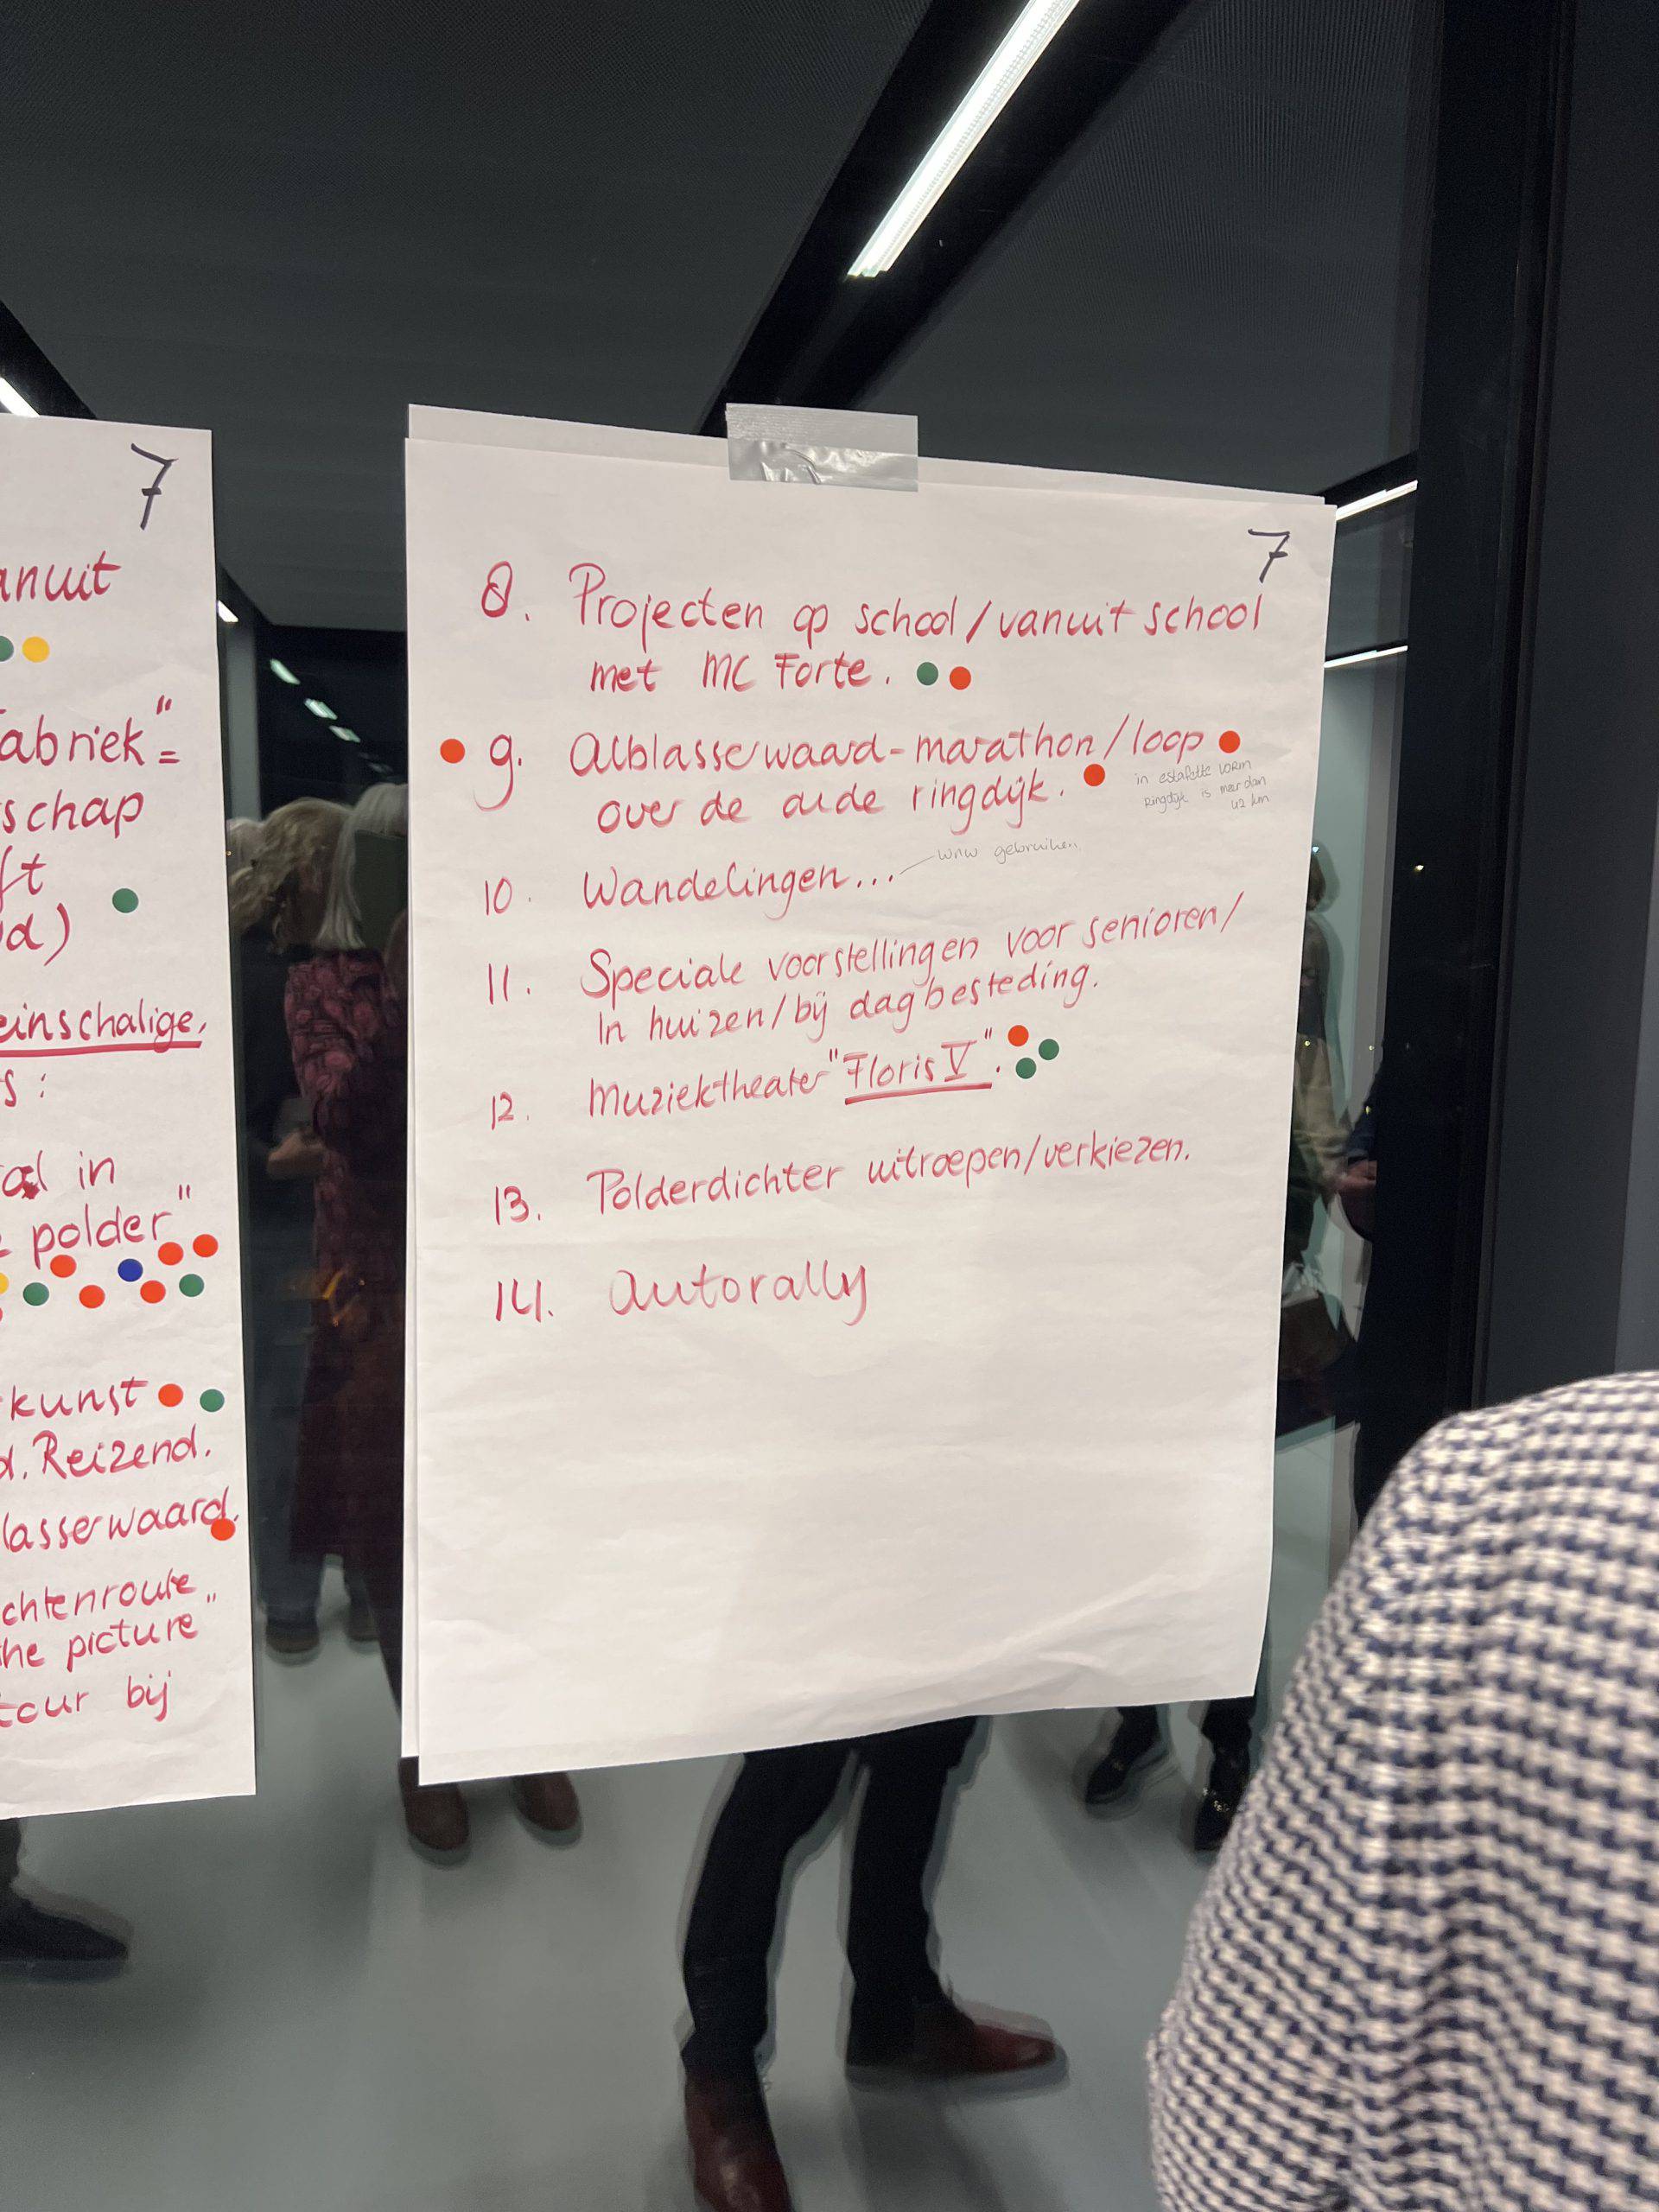 7
anuit
abriek" =
schap
ft
d)
einschalige,
s :
al in
polder"
kunst
d. Reizend.
lasserwaard.
chtenroute
he picture"
tour bij
7
8. Projecten op school/vanuit school
met MC Forte.
9. Alblasserwaard-marathon/loop
over de oude ringdijk.
in estafette vorm
Ringdijk is meer dan
42 km
10. Wandelingen...
wnw gebruiken
11. Speciale voorstellingen voor senioren/
In huizen/bij dagbesteding.
12. Muziektheater "Floris V".
13. Polderdichter uitroepen/verkiezen.
14. autorally